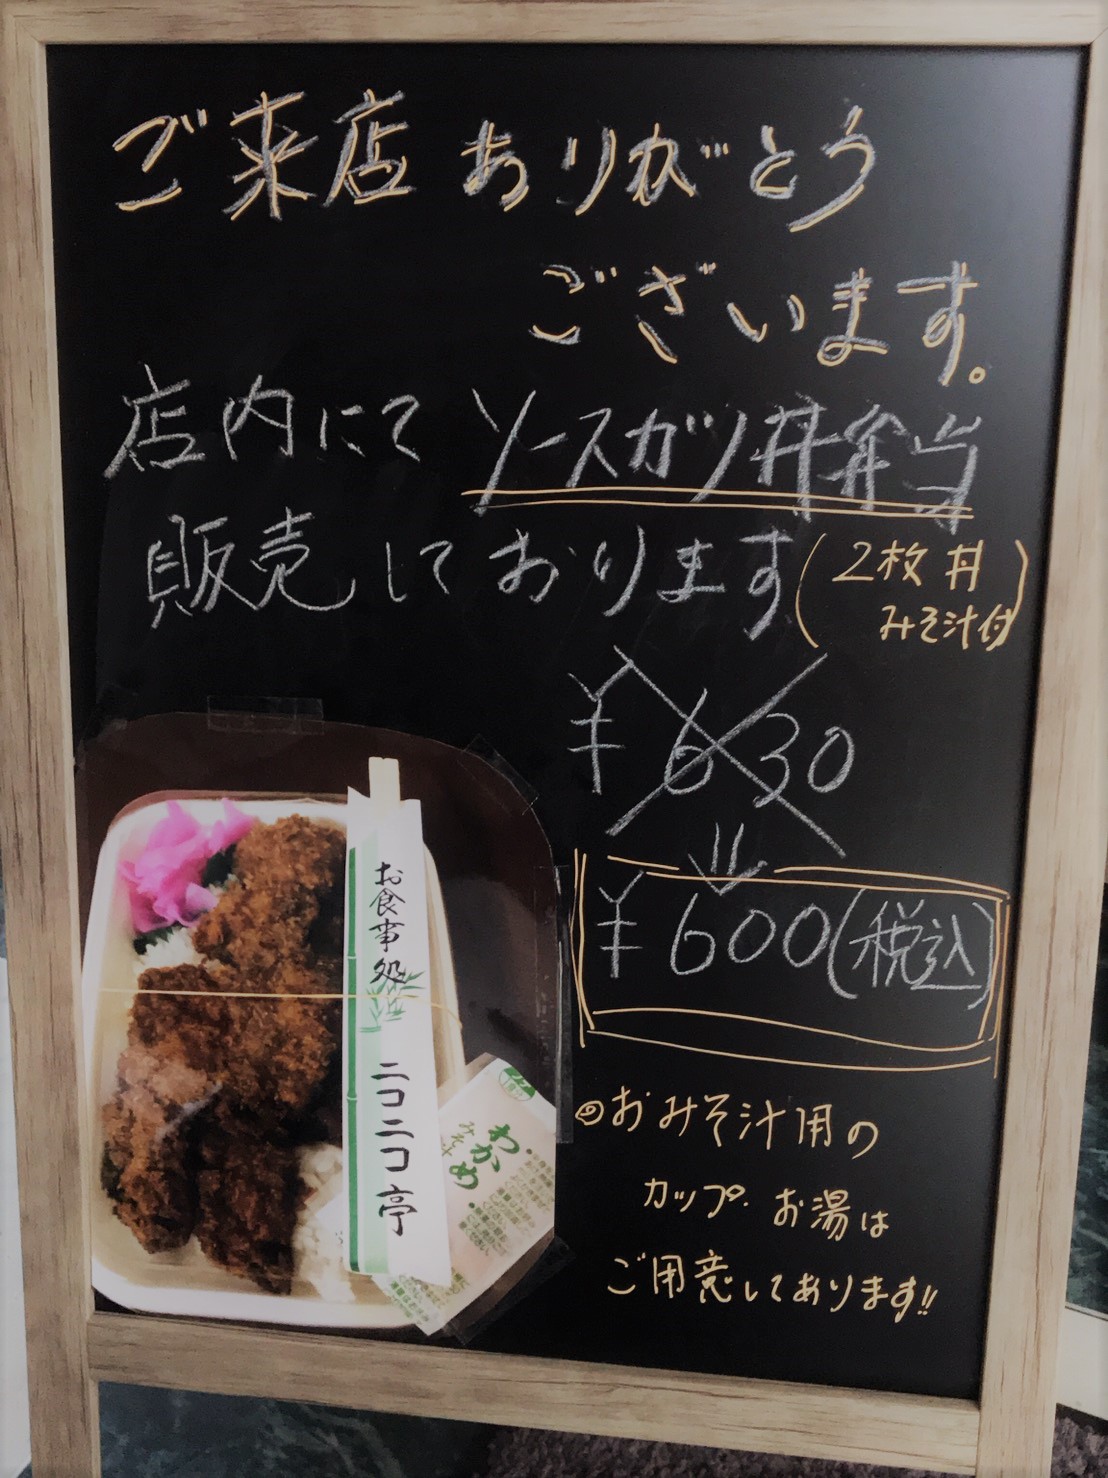 ご来店ありがとう
ございます。
店内にてソースカツ丼弁当
販売しております(2枚丼
みそ汁付)
¥630
¥600(税込)
おみそ汁用の
カップ・お湯は
ご用意してあります!!
お食事処
ニコニコ亭
わかめ
みそ汁